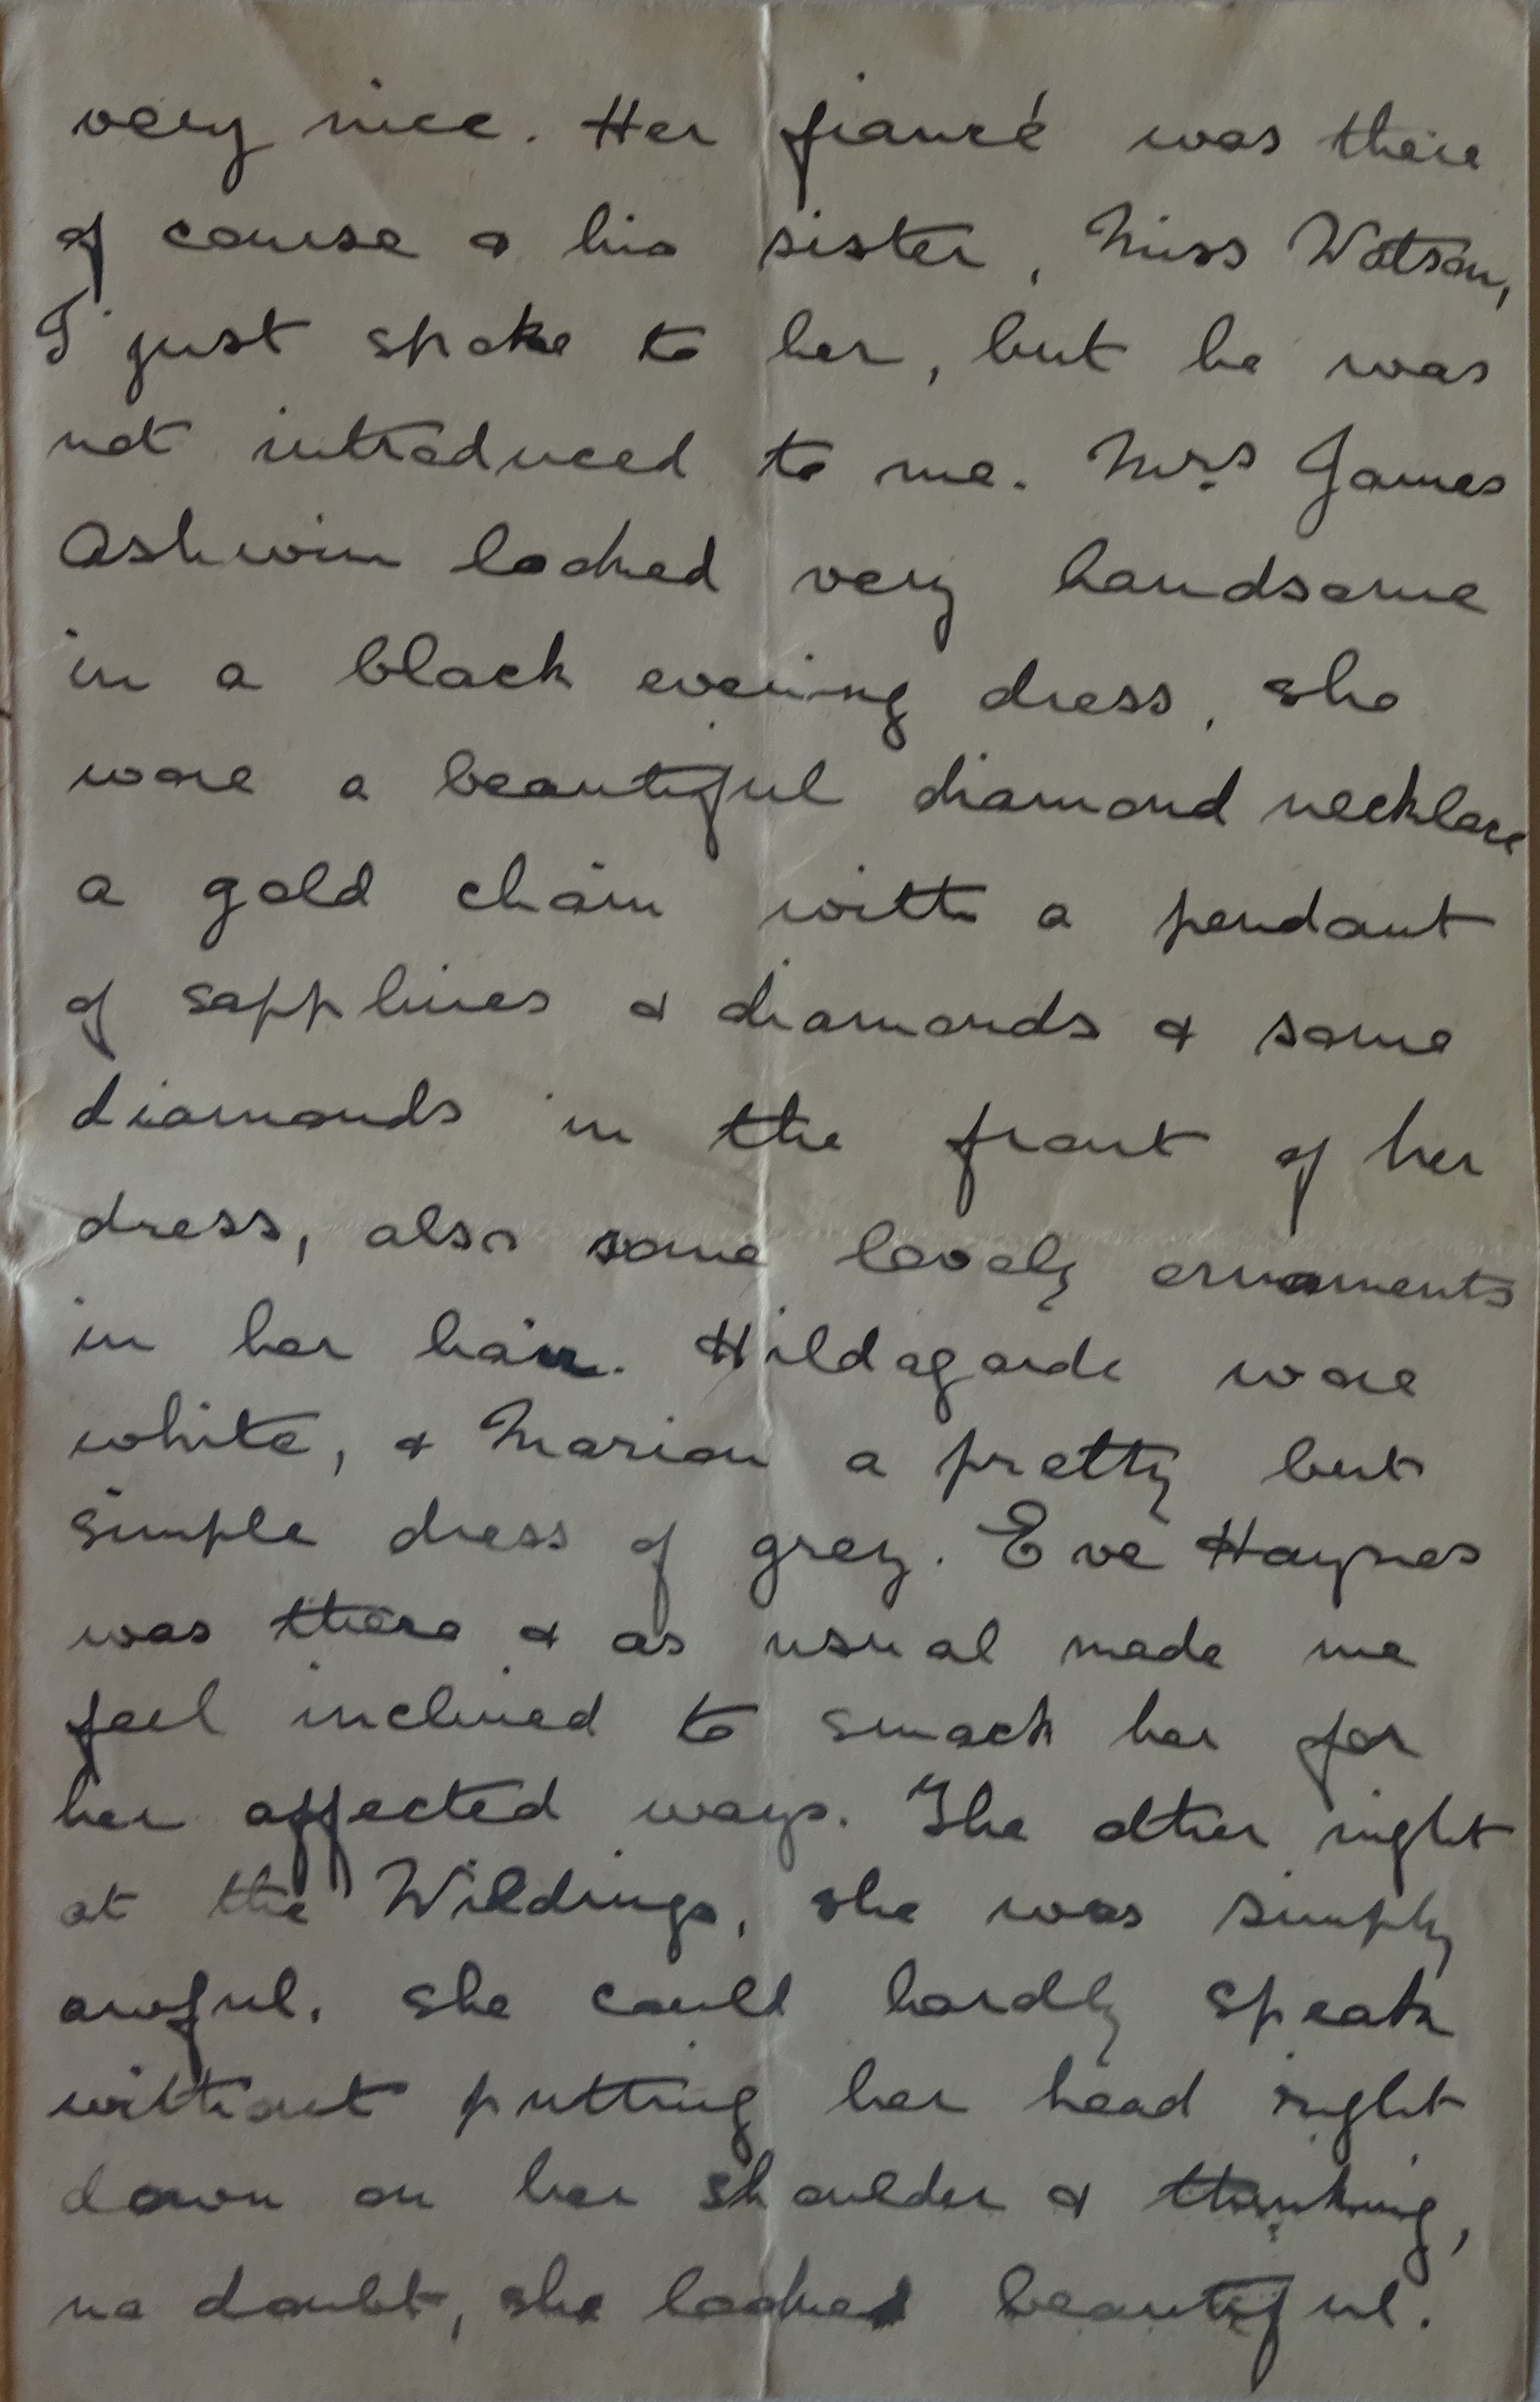 very nice. Her fiancé was there
of course & his sister, Miss Watson,
I just spoke to her, but he was
not introduced to me. Mrs James
Ashwin looked very handsome
in a black evening dress, she
wore a beautiful diamond necklace
a gold chain with a pendant
of sapphires & diamonds & some
diamonds in the front of her
dress, also some lovely ornaments
in her hair. Hildagarde wore
white, & Marion a pretty but
simple dress of grey. Eve Haynes
was there & as usual made me
feel inclined to smack her for
her affected ways. The other night
at the Wildings, she was simply
awful. She could hardly speak
without putting her head right
down on her shoulder & thinking,
no doubt, she looked beautiful.